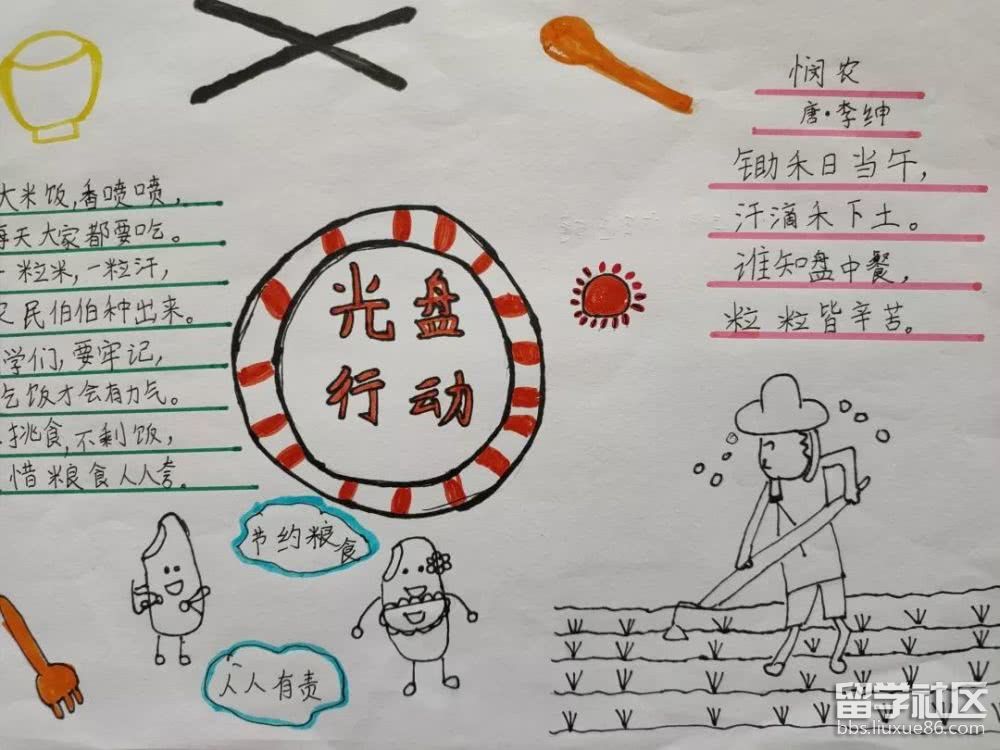 大米饭,香喷喷,
每天大家都要吃。
一粒米,一粒汗,
农民伯伯种出来。
学们,要牢记,
吃饭才会有力气。
挑食,不剩饭,
惜粮食人人夸。
光盘
行动
悯农
唐·李绅
锄禾日当午,
汗滴禾下土。
谁知盘中餐,
粒粒皆辛苦。
节约粮食
人人有责
留学社区
bbs.liuxue86.com